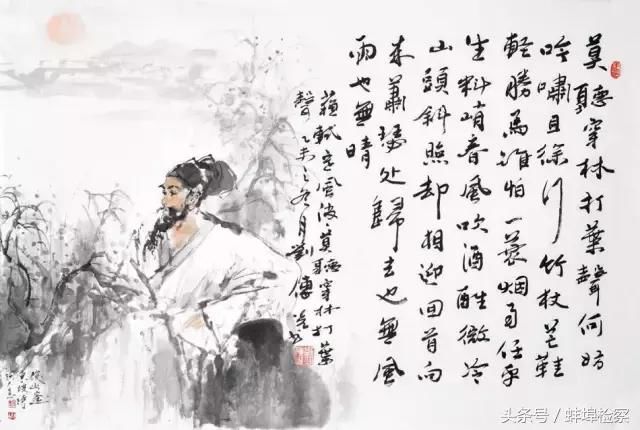 莫聽穿林打葉聲何妨
吟嘯且徐行竹杖芒鞋
輕勝馬誰怕一蓑烟雨任平
生料峭春風吹酒醒微冷
山頭斜照却相迎回首向
来蕭瑟处歸去也無風
雨也無晴
蘇軾定風波莫聽穿林打葉
聲乙未之冬月劉傳
头条号 / 蚌埠检察